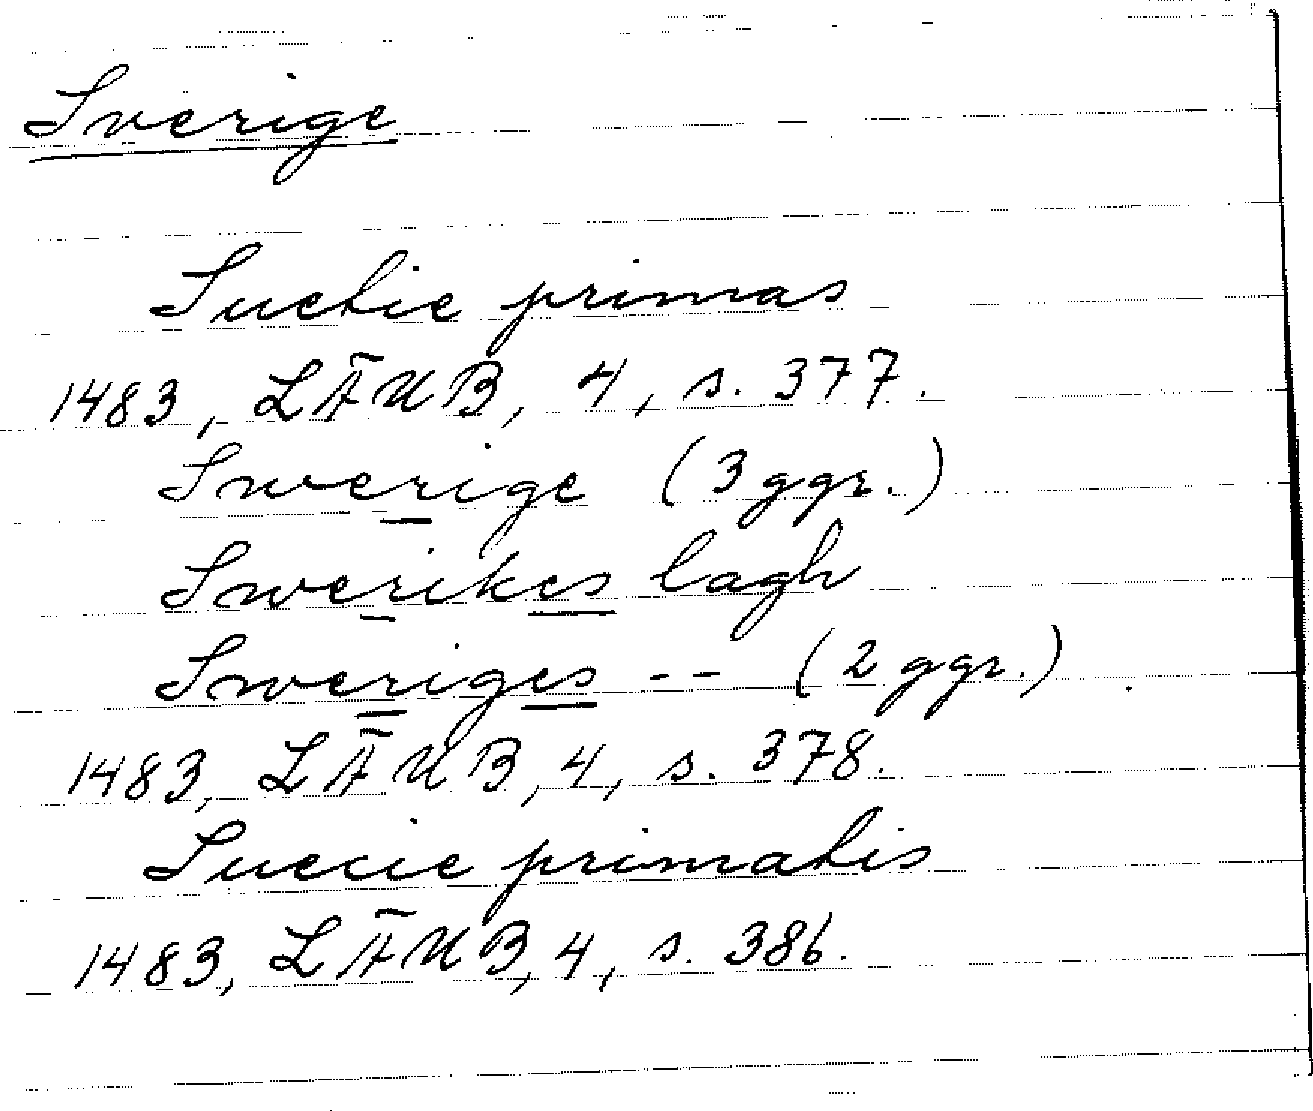 Sverige
Suetie primas
1483, LÄUB, 4, s. 377.
Swerige (3 ggr.)
Swerikes lagh
Sweriges -- (2 ggr.)
1483, LÄUB, 4, s. 378.
Suecie primatis
1483, LÄUB, 4, s. 386.